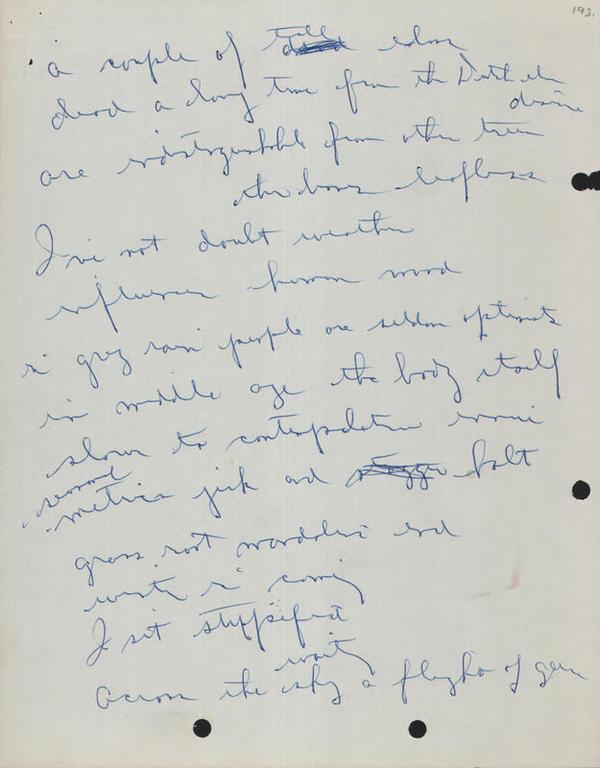 193.
a couple of tall elms
dead a long time from the Dutch elm
disease
are indistinguishable from other trees
the leafless
I've not doubt weather
influences human mood
in grey rain people are seldom optimists
in middle age the body itself
slows to contemplation
normal
jerk and halt
grass root end
winter is coming
I sit stuppified
waiting
Across the sky a flight of geese